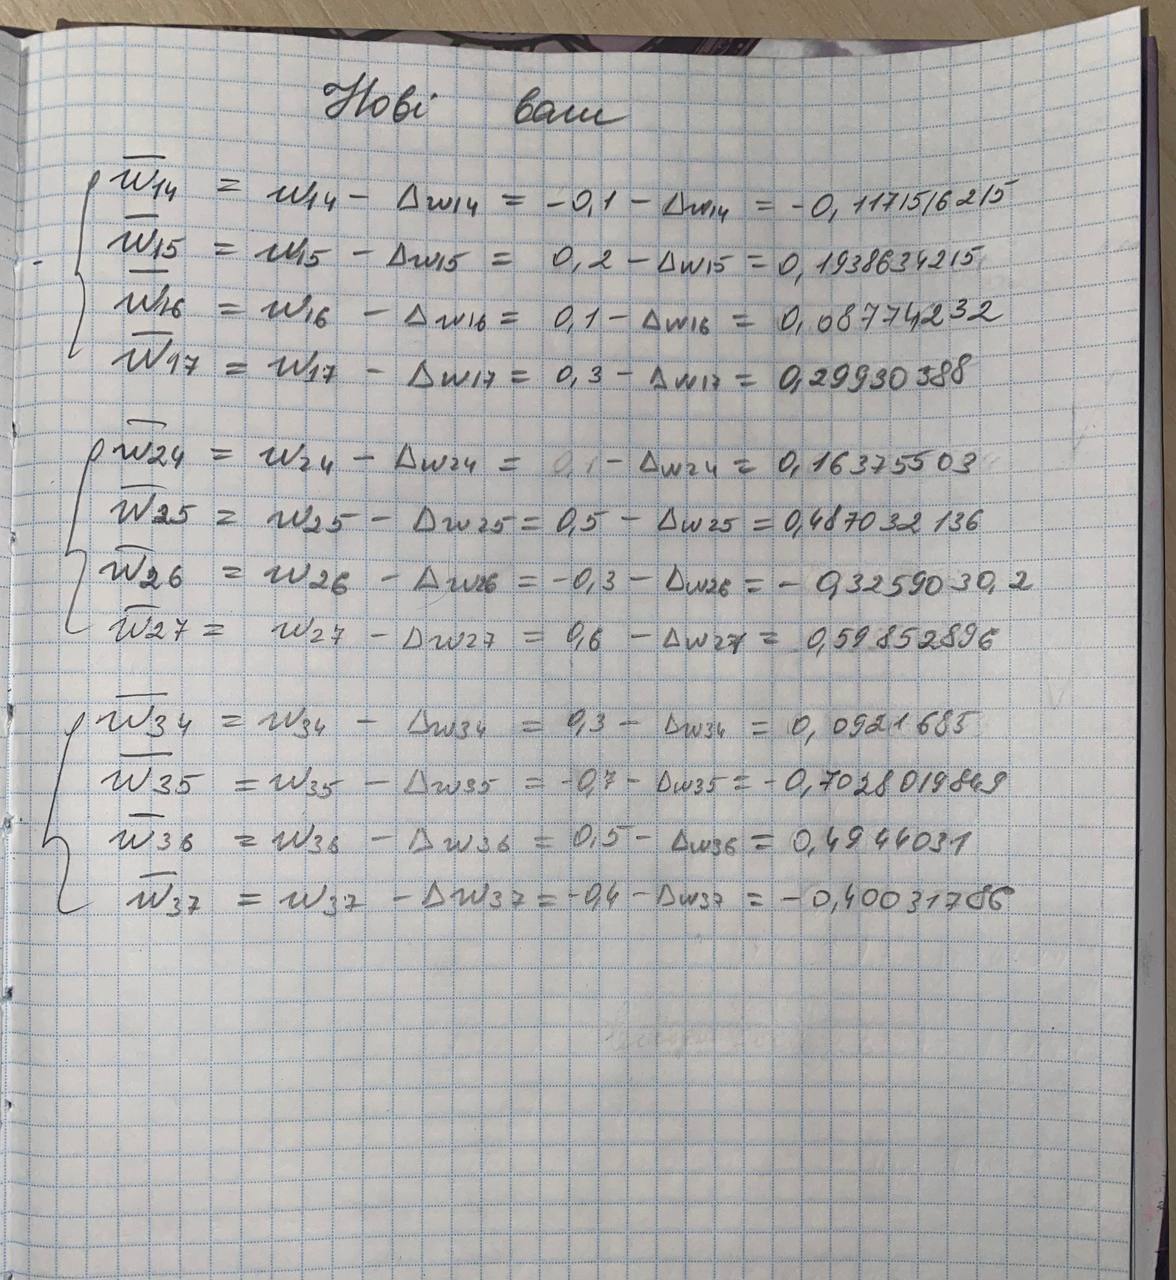 Нові ваги
w̅14 = w14 − Δw14 = −0,1 − Δw14 = −0,1171516215
w̅15 = w15 − Δw15 = 0,2 − Δw15 = 0,1938634215
w̅16 = w16 − Δw16 = 0,1 − Δw16 = 0,08774232
w̅17 = w17 − Δw17 = 0,3 − Δw17 = 0,29930388
w̅24 = w24 − Δw24 = 0,1 − Δw24 = 0,16375503
w̅25 = w25 − Δw25 = 0,5 − Δw25 = 0,487032136
w̅26 = w26 − Δw26 = −0,3 − Δw26 = −0,3259030,2
w̅27 = w27 − Δw27 = 0,6 − Δw27 = 0,59852896
w̅34 = w34 − Δw34 = 0,3 − Δw34 = 0,0921685
w̅35 = w35 − Δw35 = −0,7 − Δw35 = −0,7028019849
w̅36 = w36 − Δw36 = 0,5 − Δw36 = 0,4944031
w̅37 = w37 − Δw37 = −0,4 − Δw37 = −0,40031786